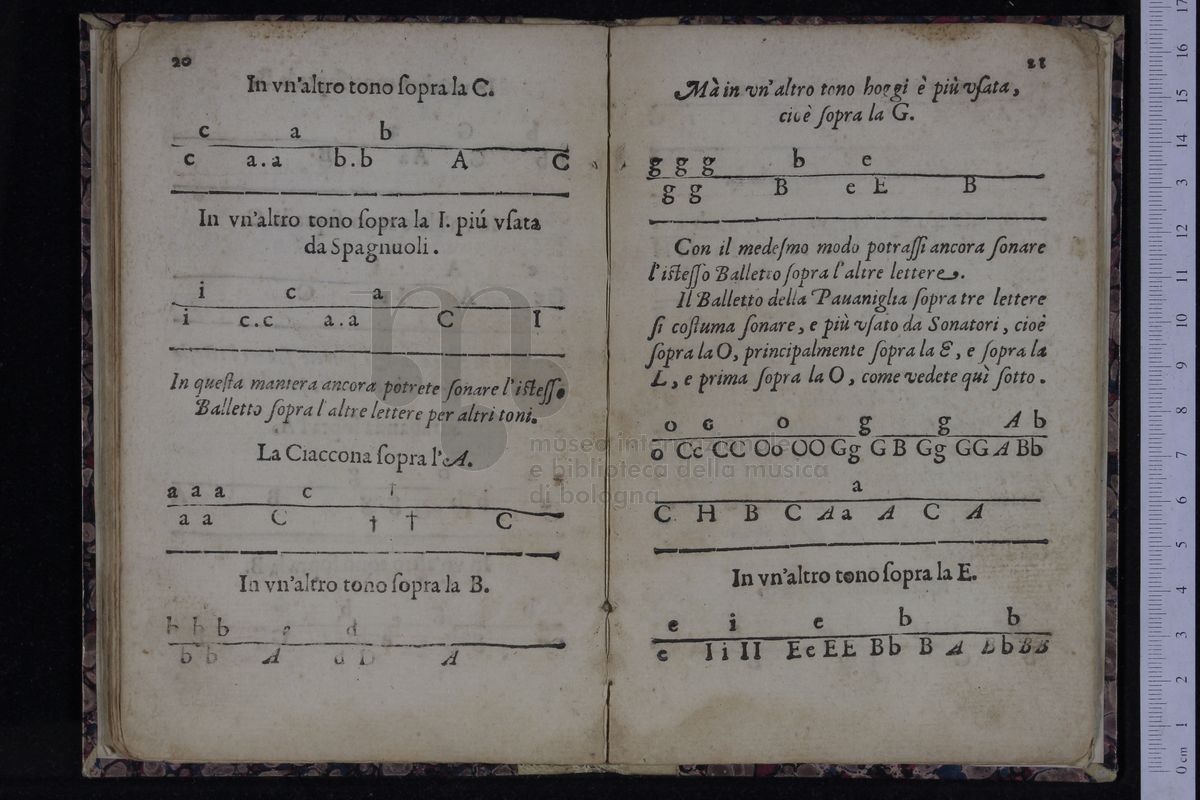 20
In vn'altro tono ſopra la C.
c a b
c a.a b.b A C
In vn'altro tono ſopra la I. più vſata
da Spagnuoli.
i c a
i c.c a.a C I
In queſta maniera ancora potrete ſonare l'iſteſſo
Balletto ſopra l'altre lettere per altri toni.
La Ciaccona ſopra l'A.
a a a c †
a a C † † C
In vn'altro tono ſopra la B.
b b b a d
b b A d D A
21
Mà in vn'altro tono hoggi è più vſata,
cioè ſopra la G.
g g g b e
g g B e E B
Con il medeſmo modo potraſſi ancora ſonare
l'iſteſſo Balletto ſopra l'altre lettere.
Il Balletto della Pauaniglia ſopra tre lettere
ſi coſtuma ſonare, e più vſato da Sonatori, cioè
ſopra la O, principalmente ſopra la E, e ſopra la
L, e prima ſopra la O, come vedete quì ſotto.
o c o g g A b
o Cc CC Oo OO Gg G B Gg GG A Bb
a
C H B C A a A C A
In vn'altro tono ſopra la E.
e i e b b
e I i II Ee EE Bb B A Bb BB
museo internazionale
e biblioteca della musica
di bologna
0 cm 1 2 3 4 5 6 7 8 9 10 11 12 13 14 15 16 17